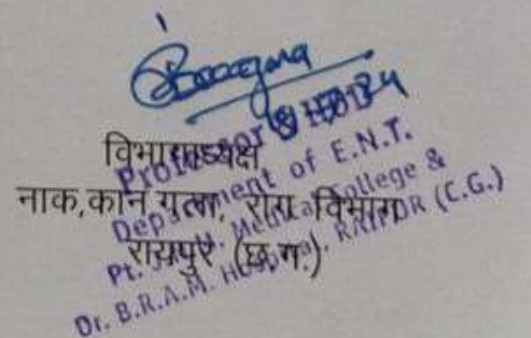 विभागाध्यक्ष
नाक,कान गला, रोग विभाग
रायपुर (छ.ग.)
Professor & HOD
Department of E.N.T.
Medical College &
Dr. B.R.A.M. Hospital, RAIPUR (C.G.)